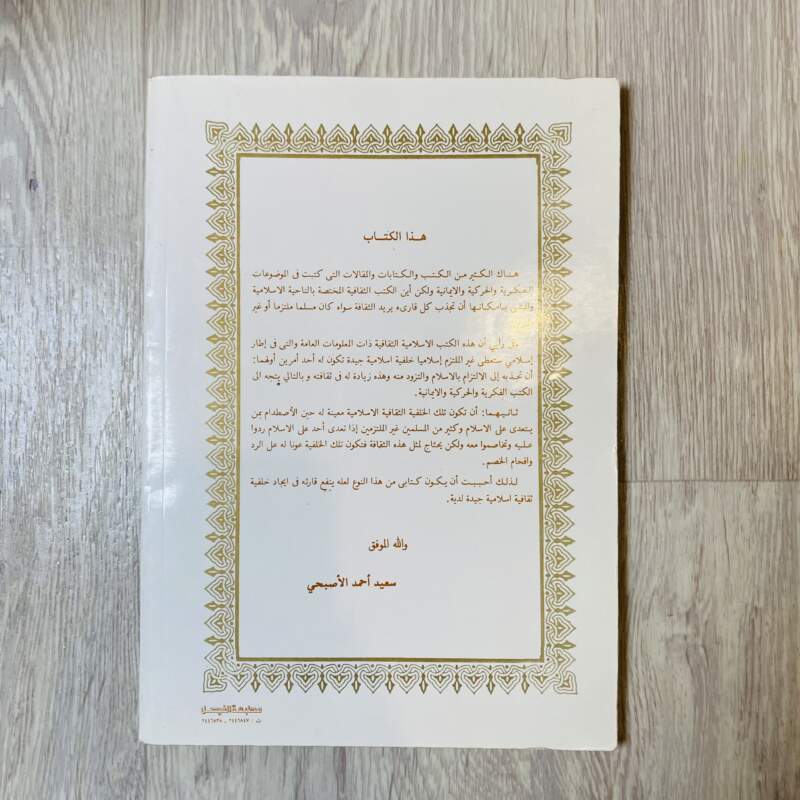 هذا الكتاب
هناك الكثير من الكتب والكتابات والمقالات التى كتبت فى الموضوعات
الفكرية والحركية والايمانية ولكن أين الكتب الثقافية المختصة بالناحية الاسلامية
والتى بامكانها أن تجذب كل قارىء يريد الثقافة سواء كان مسلما ملتزما أو غير
وفى رأيي أن هذه الكتب الاسلامية الثقافية ذات المعلومات العامة والتى فى إطار
إسلامي ستعطى غير الملتزم إسلاميا خلفية اسلامية جيدة تكون له أحد أمرين أولهما:
أن تجذبه إلى الالتزام بالاسلام والتزود منه وهذه زيادة له فى ثقافته و بالتالي يتجه الى
الكتب الفكرية والحركية والايمانية.
ثانيهما: أن تكون تلك الخلفية الثقافية الاسلامية معينة له حين الأصطدام بمن
يتعدى على الاسلام وكثير من السلمين غير الملتزمين إذا تعدى أحد على الاسلام ردوا
عليه وتخاصموا معه ولكن يحتاج لمثل هذه الثقافة فتكون تلك الخلفية عونا له على الرد
وافحام الخصم.
لذلك أحببت أن يكون كتابى من هذا النوع لعله ينفع قارئه فى ايجاد خلفية
ثقافية اسلامية جيدة لدية.
والله الموفق
سعيد أحمد الأصبحي
مطابع الفيصل
ت : ٢٤٤٦٨٤٧ ـ ٢٤٤٦٨٣٨